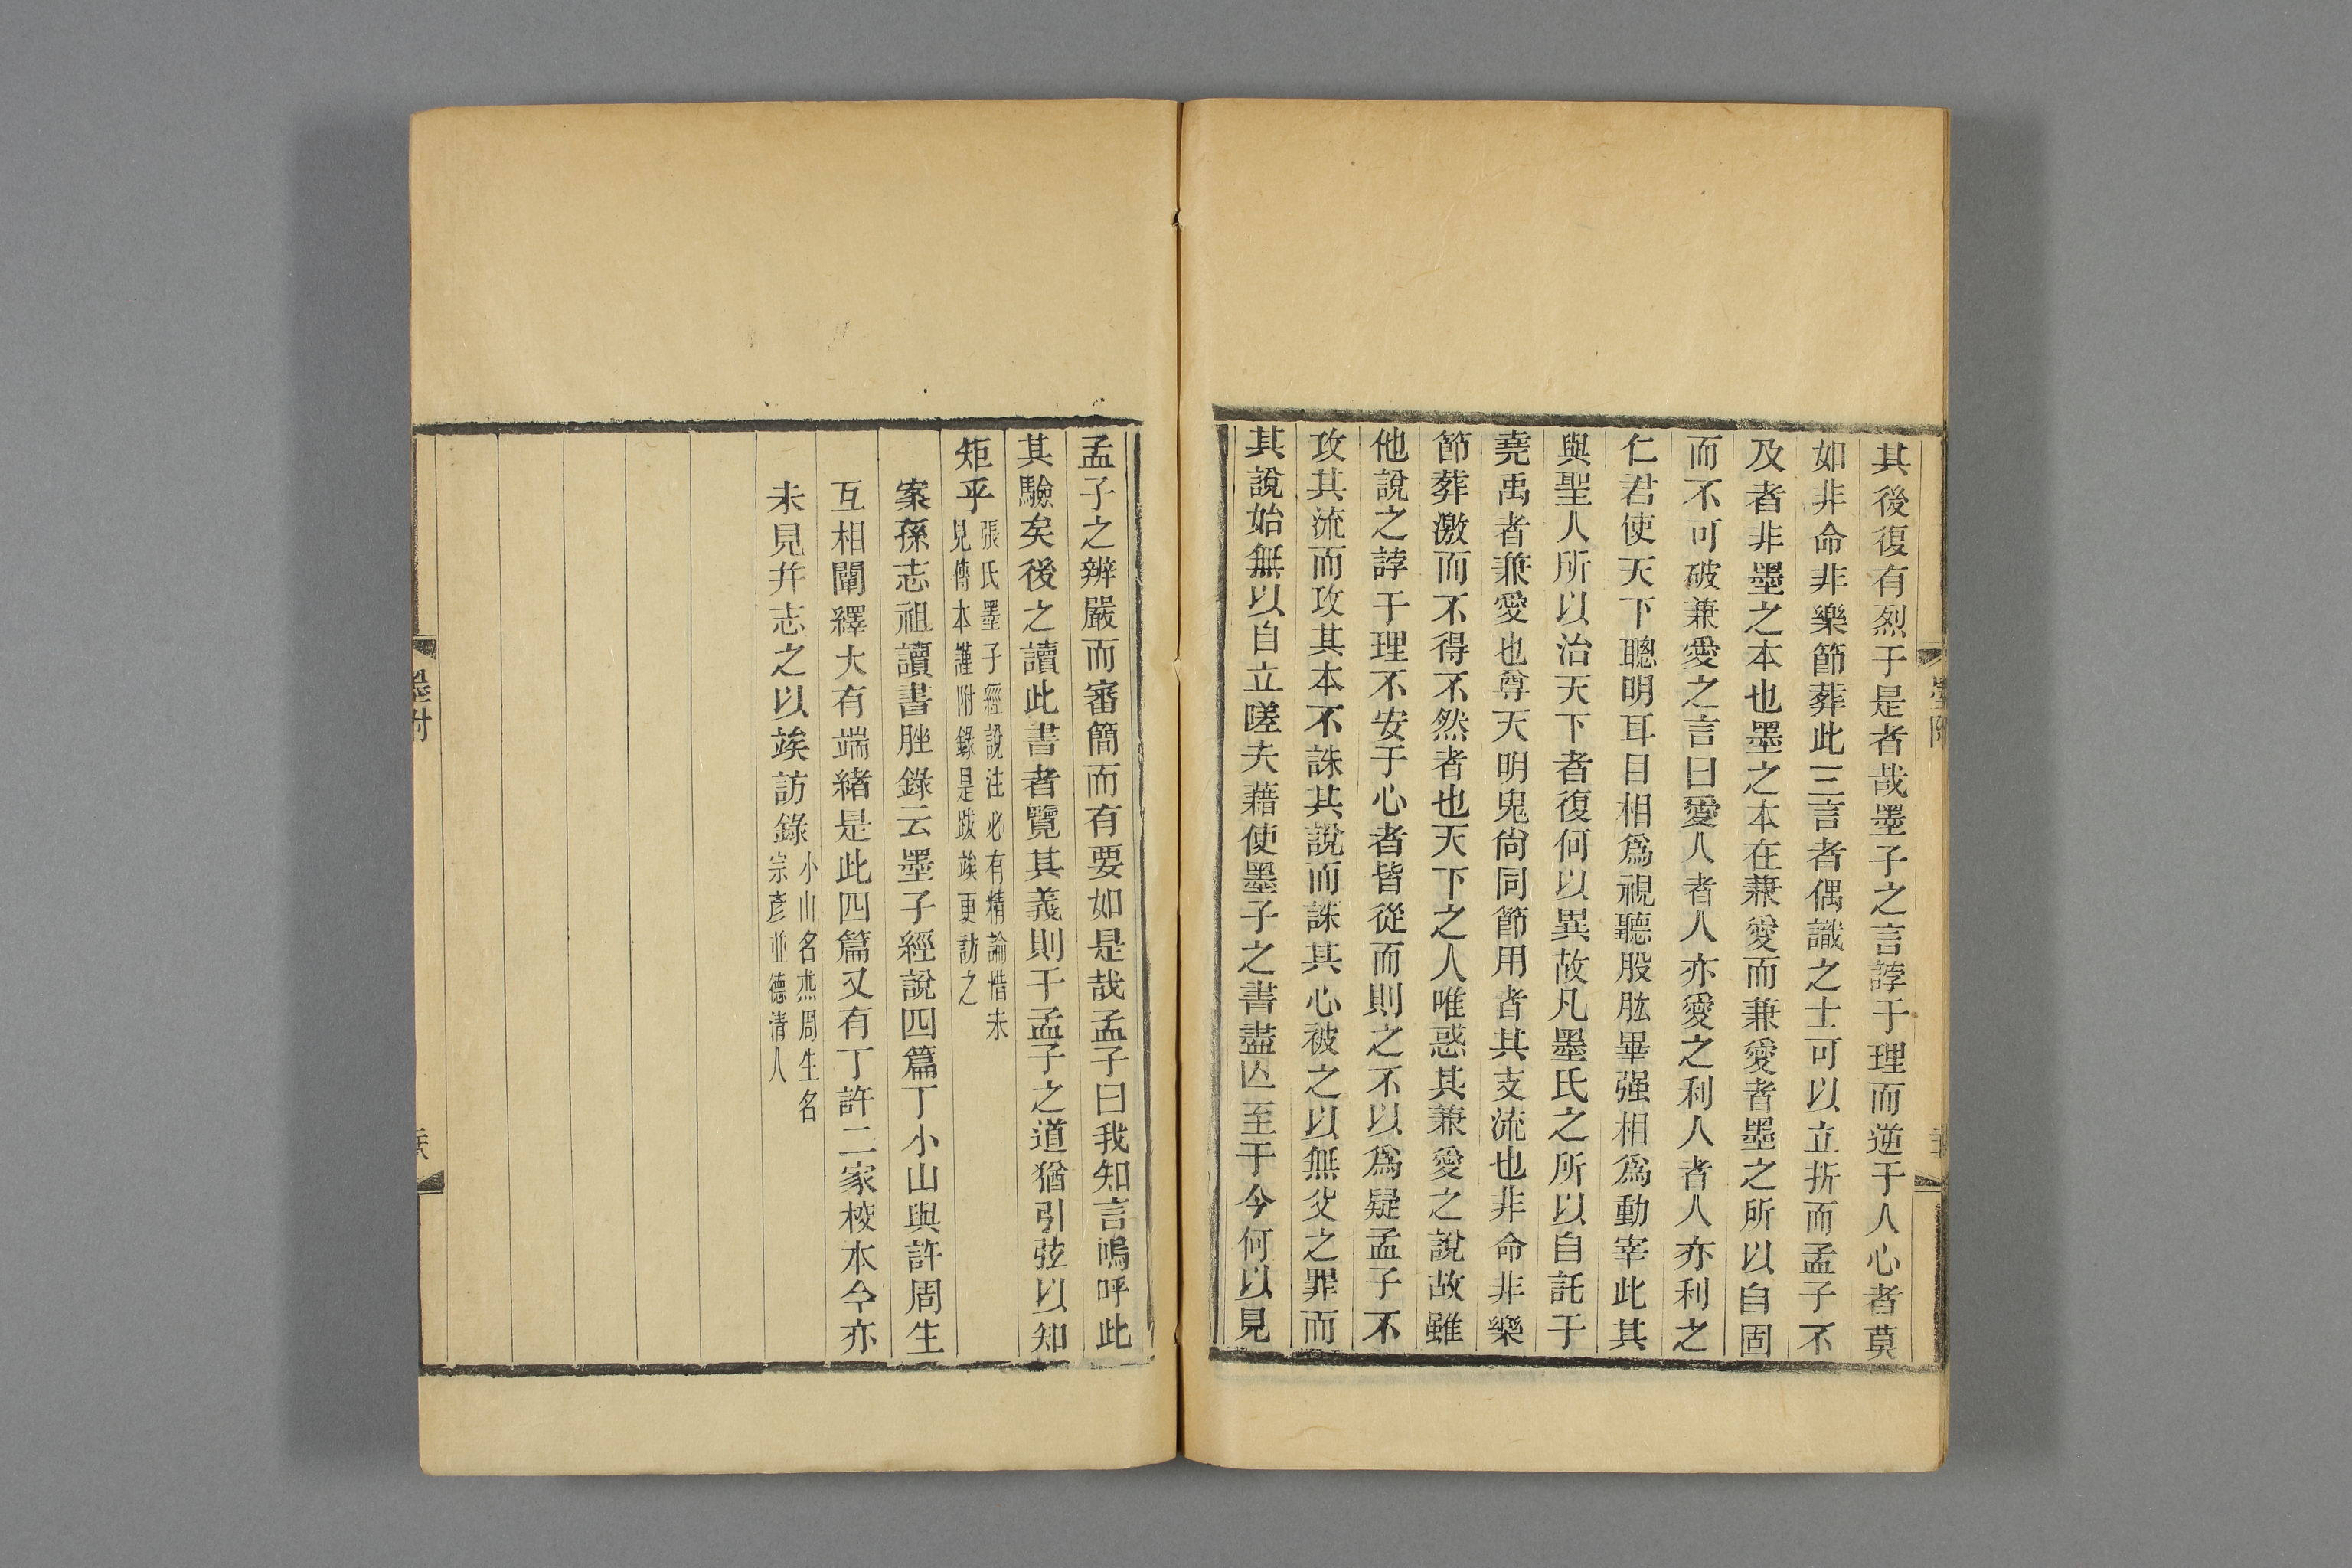 其後復有烈于是者哉墨子之言誖于理而逆于人心者莫
如非命非樂節葬此三言者偶識之士可以立折而孟子不
及者非墨之本也墨之本在兼愛而兼愛者墨之所以自固
而不可破兼愛之言曰愛人者人亦愛之利人者人亦利之
仁君使天下聰明耳目相爲視聽股肱畢强相爲動宰此其
與聖人所以治天下者復何以異故凡墨氏之所以自託于
堯禹者兼愛也尊天明鬼尙同節用者其支流也非命非樂
節葬激而不得不然者也天下之人唯惑其兼愛之說故雖
他說之誖于理不安于心者皆從而則之不以爲疑孟子不
攻其流而攻其本不誅其說而誅其心被之以無父之罪而
其說始無以自立嗟夫藉使墨子之書盡亾至于今何以見
孟子之辨嚴而審簡而有要如是哉孟子曰我知言嗚呼此
其驗矣後之讀此書者覽其義則于孟子之道猶引弦以知
矩乎
張氏墨子經說注必有精論惜未
見傳本謹附錄是跋竢更訪之
案孫志祖讀書脞錄云墨子經說四篇丁小山與許周生
互相闡繹大有端緒是此四篇又有丁許二家校本今亦
未見幷志之以竢訪錄
小山名杰周生名
宗彥並德清人
墨附